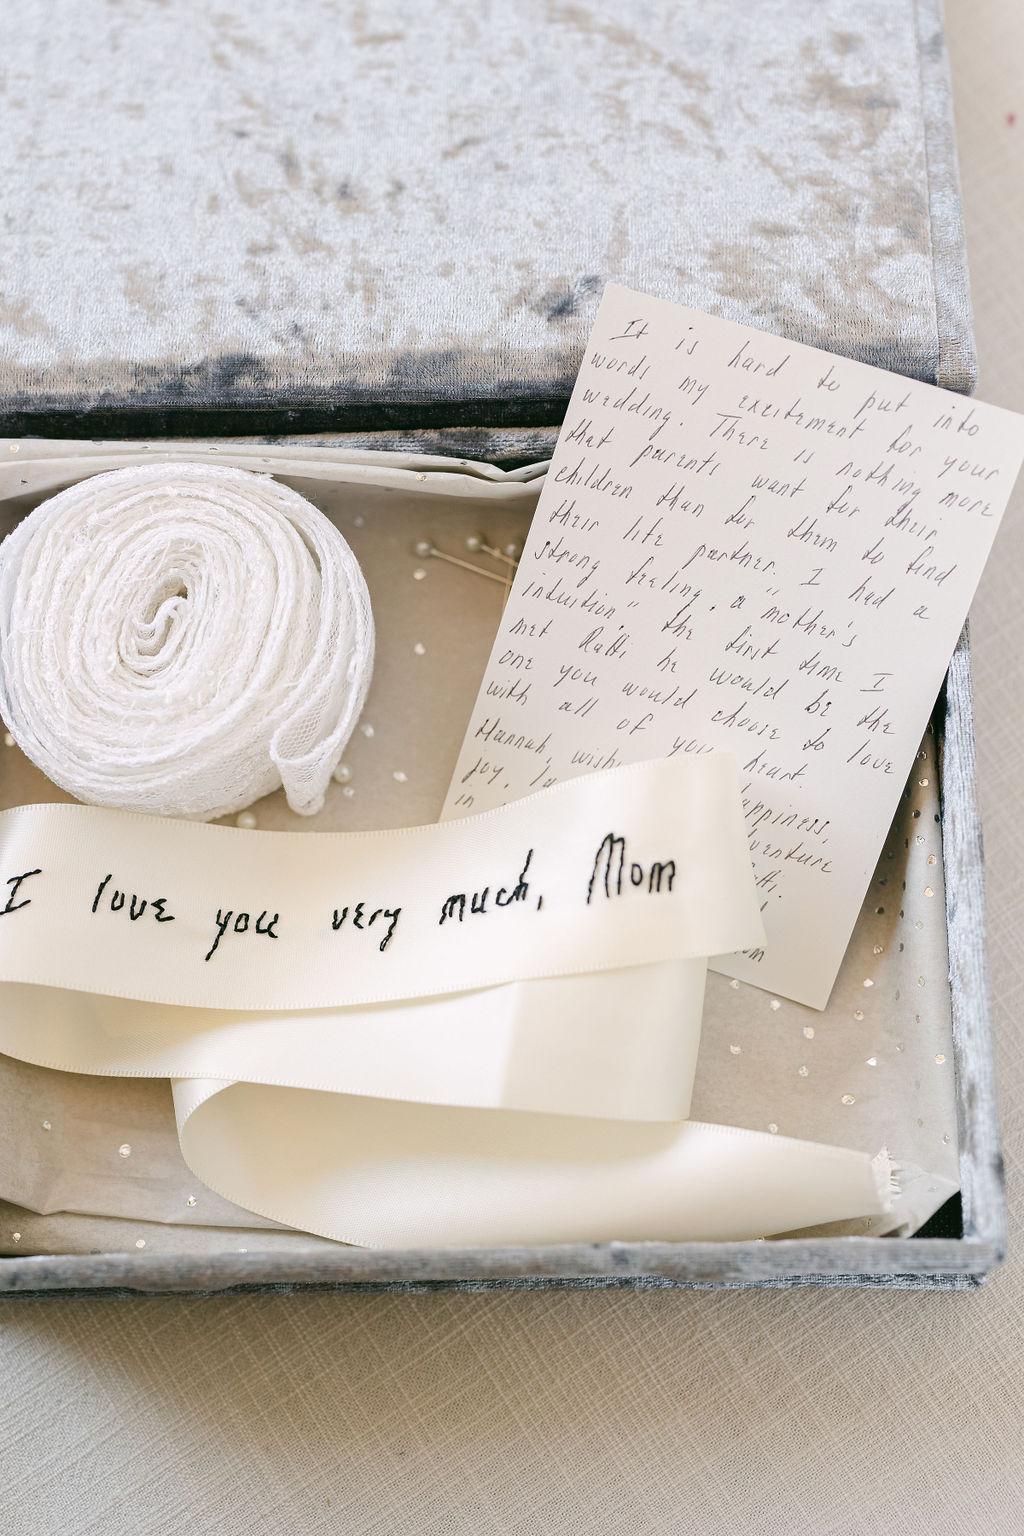 It is hard to put into
words my excitement for your
wedding. There is nothing more
that parents want for their
children than for them to find
their life partner. I had a
strong feeling, "a mother's
intuition" the first time I
met Ratti he would be the
one you would choose to love
with all of your heart.
Hannah, wish
joy,
in
I love you very much, Mom